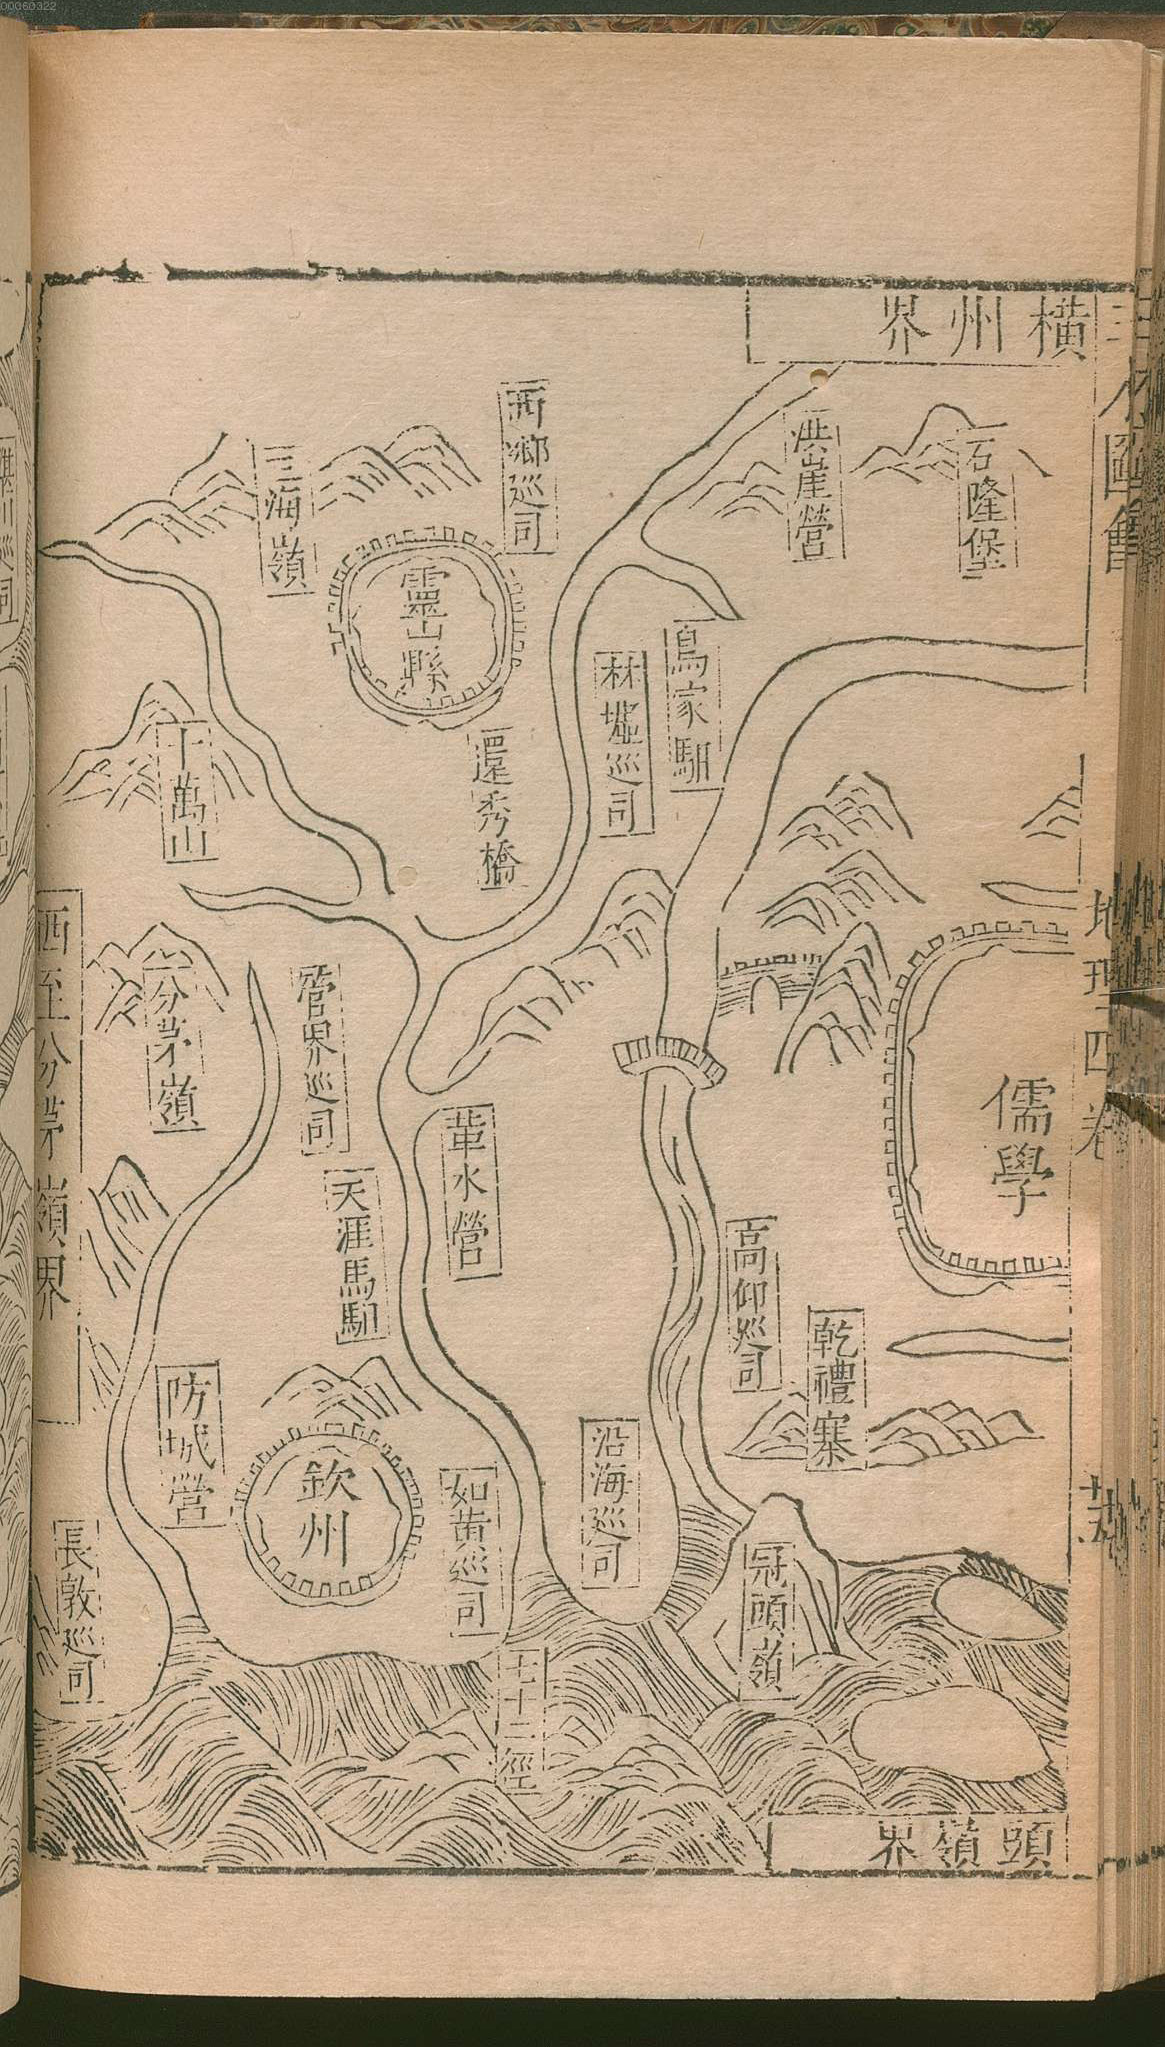 00060322
三才圖會
地理四卷
橫州界
石隆堡
洪崖營
西鄉巡司
三海嶺
靈山縣
烏家馹
林墟巡司
還秀橋
十萬山
西至分茅嶺界
分茅嶺
管界巡司
天涯馬馹
葷水營
儒學
高仰巡司
乾禮寨
沿海巡司
防城營
欽州
如黃巡司
長敦巡司
冠頭嶺
七十二徑
頭嶺界